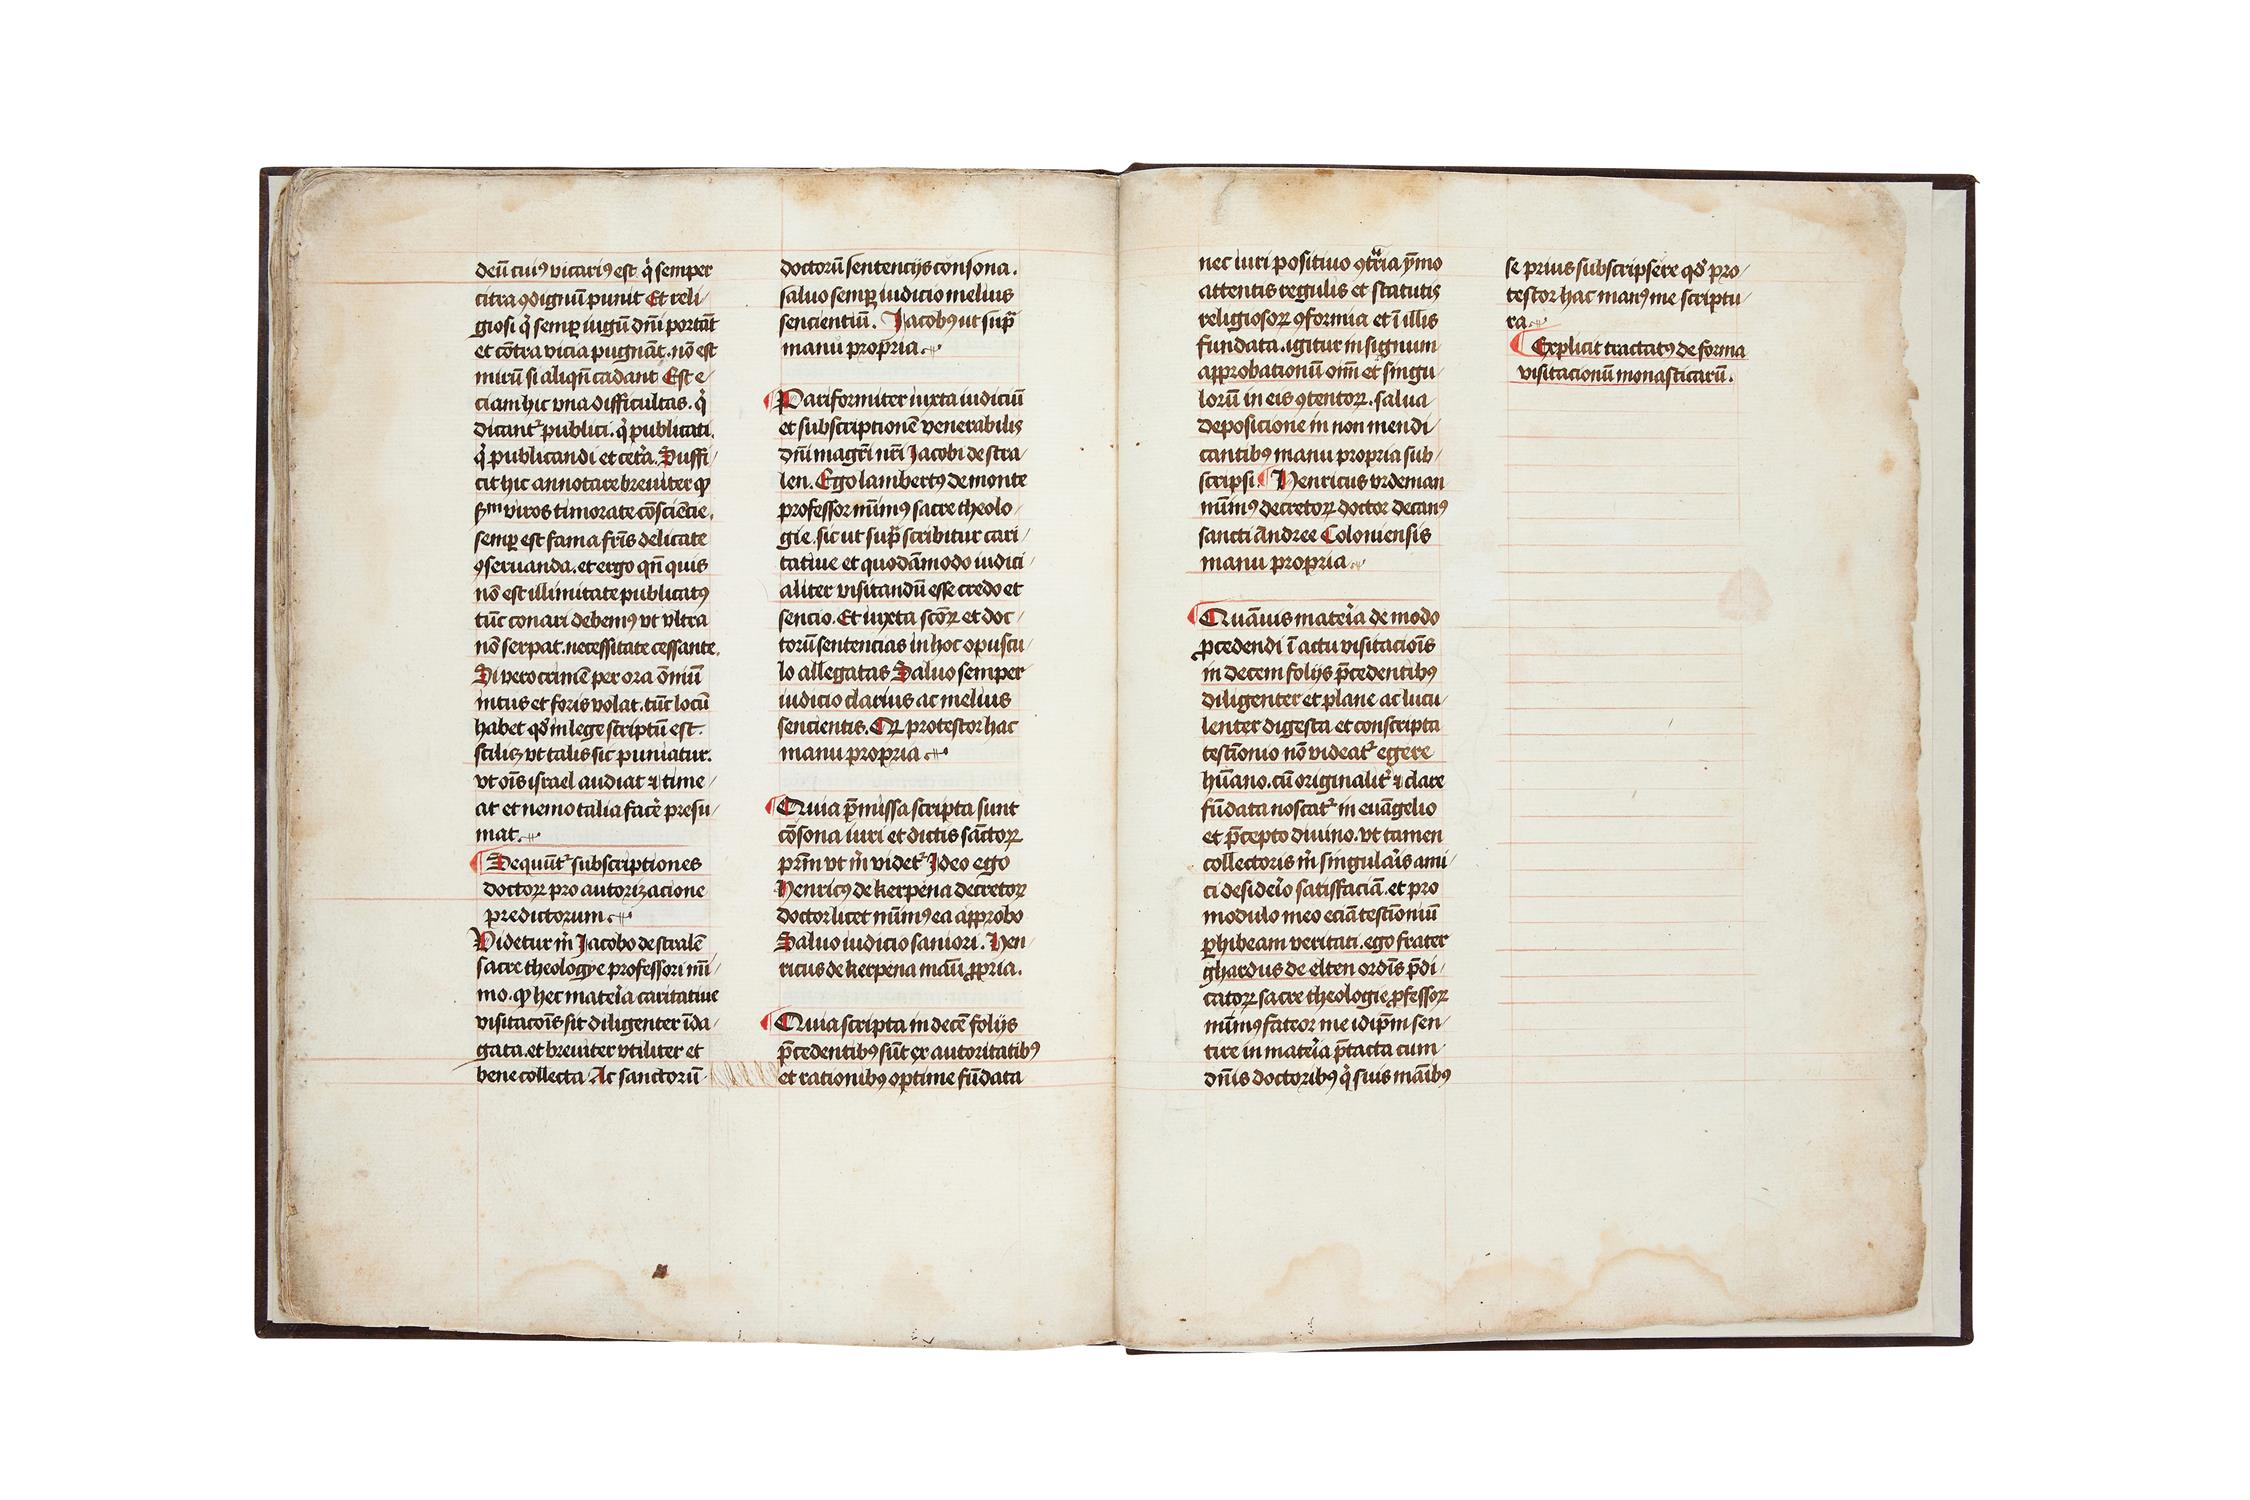 deū cui9 vicari9 est. q̇ semper
citra ꝯdignum punit Et reli/
giosi q̇ semꝑ iugū dn̄i portāt
et cōtra vicia pugnāt. nō est
mirū si aliqn̄ cadant Est e/
ciam hic vna difficultas. q̇
dicant᷑ publici. q̇ publicati.
q̇ publicandi et ceťa. Suffi/
cit hic annotare breuiter ꝙ
ẜm viros timorate cōsciēcie.
semꝑ est fama fr̄is delicate
ꝯseruanda. et ergo qn̄ quis
nō est illimitate publicat9
tūc conari debem9 vt vltra
nō serpat. necessitate cessante.
Si vero crimē per ora om̄iū
intus et foris volat. tūc locū
habet qd̓ in lege scriptū est.
scilicꝫ vt talis sic puniatur.
vt oīs israel audiat ⁊ time/
at et nemo talia faċe presu/
mat.
Sequūt᷑ subscriptiones
doctoꝝ pro autorizacione
predictorum
Videtur m̓ Jacobo de stralē
sacre theologye professori mi̅/
mo. ꝙ hec mateṙia caritatiue
visitaco̅is sit diligenter īda/
gata. et breuiter vtiliter et
bene collecta Ac sanctorū
doctorū sentencijs consona.
saluo semꝑ iudicio melius
sencientiū. Jacob9 ut sup̄
manu propria.
Pariformiter iuxta iudiciū
et subscriptionē venerabilis
dn̄i magr̄i nr̄i Jacobi de stra/
len. Ego lambert9 de monte
professor mi̅im9 sacre theolo/
gie. sic ut sup̄ scribitur cari/
tatiue et quodāmodo iudici/
aliter visitandū esse credo et
sencio. Et iuxta sc̄oꝝ et doc/
torū sentencias in hoc opuscu/
lo allegatas Saluo semper
iudicio clarius ac melius
sencientis. Qd̓ protestor hac
manu propria
Quia p̄missa scripta sunt
cōsona iuri et dictis sāctoꝝ
pr̄m vt m̓ videt᷑ Ideo ego
Henric9 de kerpena decretoꝝ
doctor licet mi̅im9 ea approbo
Saluo iudicio saniori. Hen/
ricus de kerpena manū ꝓpria.
Quia scripta in decē folijs
p̄cedentib9 sūt ex autoritatib9
et rationib9 optime fūdata
nec iuri positiuo ꝯtͣria ymo
attentis regulis et statutis
religiosoꝝ ꝯformia et ī illis
fundata. igitur in signum
approbationū om̄i et singu/
lorū in eis ꝯtentoꝝ. salua
deposicione in non mendi/
cantibus manu propria sub/
scripsi Henricus vrdeman
mi̅im9 decretoꝝ doctor decan9
sancti Andree Coloniensis
manu propria
Quāuis mateṙia de modo
ꝓcedendi ī actu visitaciōis
in decem folijs p̄cedentibus
diligenter et plane ac lucu/
lenter digesta et conscripta
testīonio nō videat᷑ egere
hūano. cū originalit᷑ ⁊ clare
fūdata noscat᷑ in euāgelio
et p̄cepto diuino. vt tamen
collectoris m̓ singulaṙis ami/
ci desideṙio satisfaciā. et pro
modulo meo eciā testīoniū
ꝑhibeam veritati. ego frater
gḣardus de elten ordīs p̄di/
catoꝝ sacre theologie ꝓfessoꝝ
mi̅im9 fateor me idip̄m sen/
tire in mateṙia p̄tacta cum
dn̄is doctorib9 q̇ suis manib9
se prius subscripsere qd̓ pro/
testor hac man9 me scriptu/
ra.
Explicit tractat9 de forma
visitacionū monasticarū.